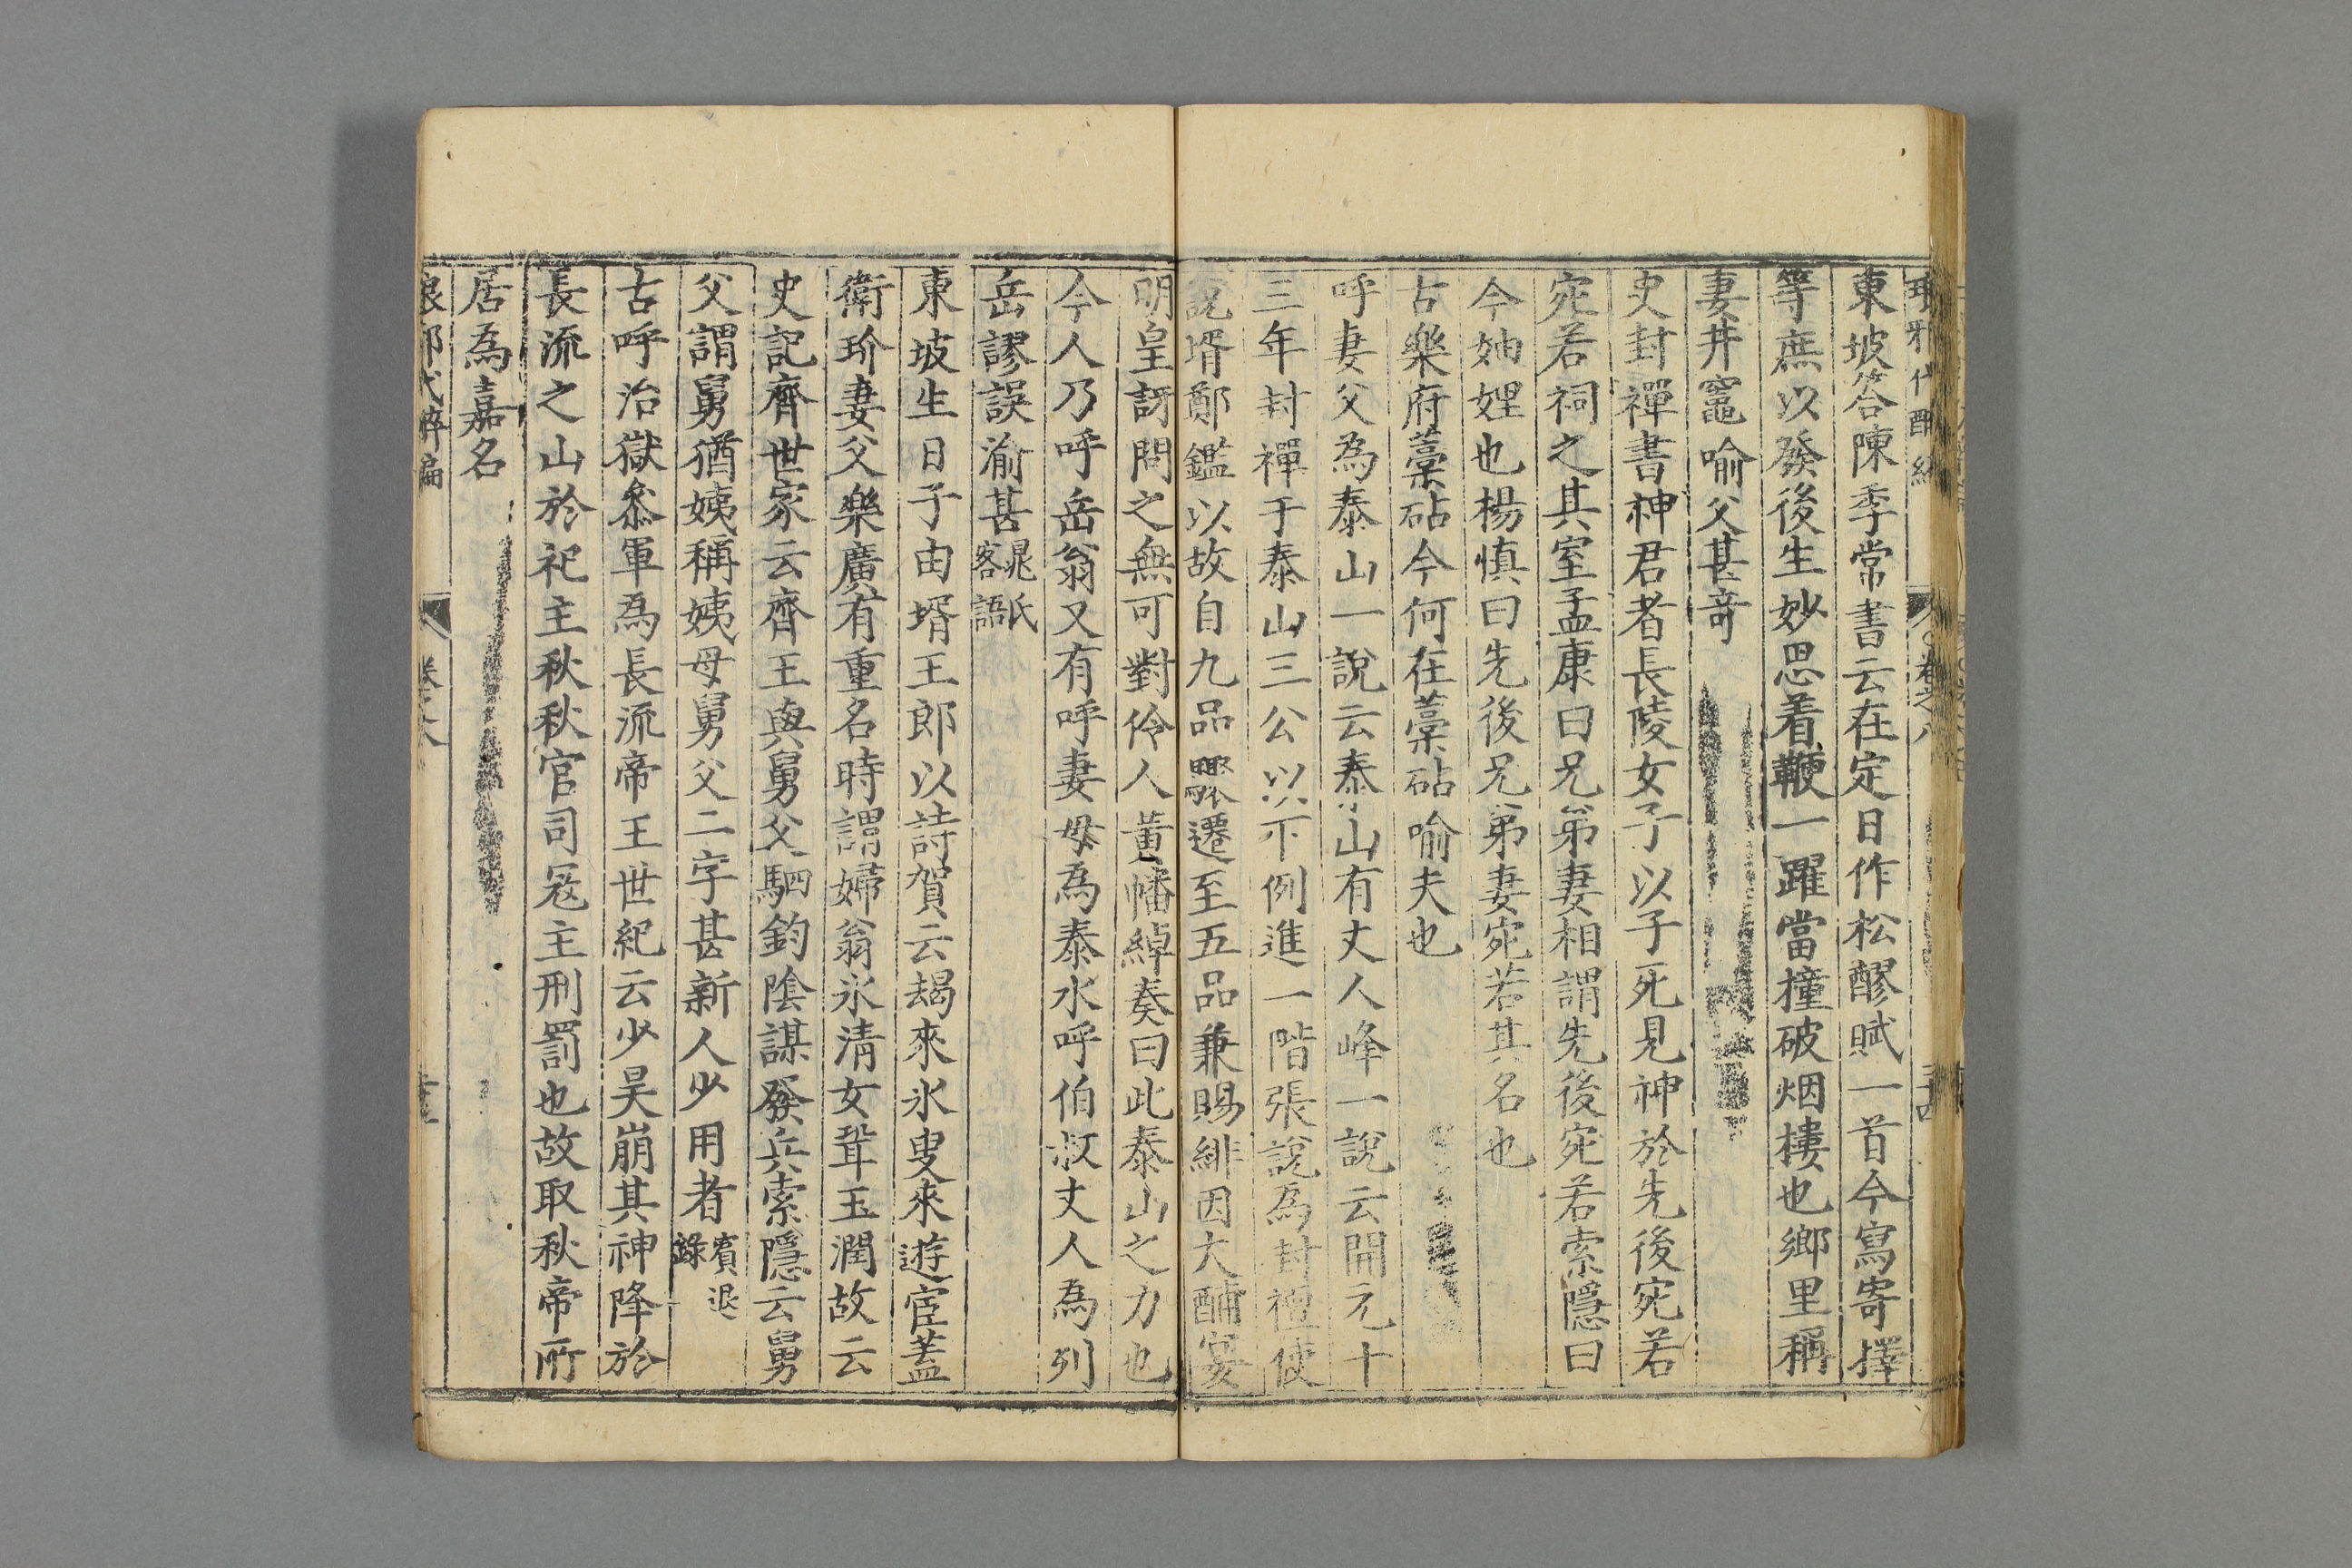 東坡答陳季常書云在定日作松醪賦一首今寫寄擇
等庶以發後生妙思着鞭一躍當撞破烟樓也鄉里稱
妻井竈喻父甚奇
史封禪書神君者長陵女子以子死見神於先後宛若
宛若祠之其室孟康曰兄弟妻相謂先後宛若索隱曰
今妯娌也楊慎曰先後兄弟妻宛若其名也
古樂府藁砧今何在藁砧喻夫也
呼妻父為泰山一說云泰山有丈人峰一說云開元十
三年封禪于泰山三公以下例進一階張說為封禪使
說壻鄭鑑以故自九品驟遷至五品兼賜緋因大酺宴
明皇訝問之無可對伶人黃幡綽奏曰此泰山之力也
今人乃呼岳翁又有呼妻母為泰水呼伯叔丈人為列
岳謬誤渝甚晁氏客語
東坡生日子由壻王郎以詩賀云朅來氷叟來遊宦蓋
衛玠妻父樂廣有重名時謂婦翁氷清女壻玉潤故云
史記齊世家云齊王與舅父駟鈞陰謀發兵索隱云舅
父謂舅猶姨稱姨母舅父二字甚新人少用者賓退錄
古呼治獄叅軍為長流帝王世紀云少昊崩其神降於
長流之山於祀主秋秋官司冦主刑罰也故取秋帝所
居為嘉名